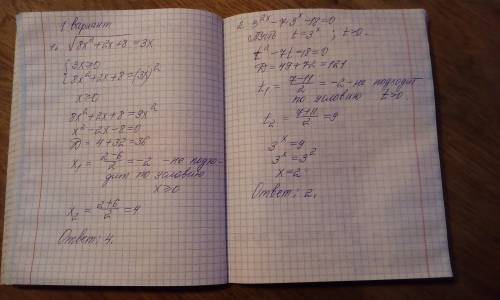 1 вариант
1. √8x²+2x+8 = 3x
{3x≥0
{8x²+2x+8=(3x)²
x≥0
8x²+2x+8=9x²
x²-2x-8=0
D=4+32=36
x₁ = (2-6)/2 = -2 - не подхо-
дит по условию
x≥0
x₂ = (2+6)/2 = 4
Ответ: 4.
2. 3²ˣ-7·3ˣ-18=0
Пусть t=3ˣ ; t>0.
t²-7t-18=0
D=49+72=121
t₁ = (7-11)/2 = -2 - не подходит
по условию t>0
t₂ = (7+11)/2 = 9
3ˣ=9
3ˣ=3²
x=2
Ответ: 2.